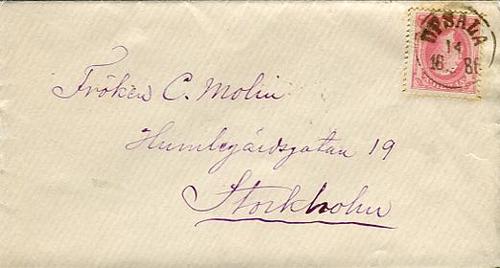 UPSALA
14
16 86
Fröken C. Molin
Humlegårdsgatan 19
Stockholm